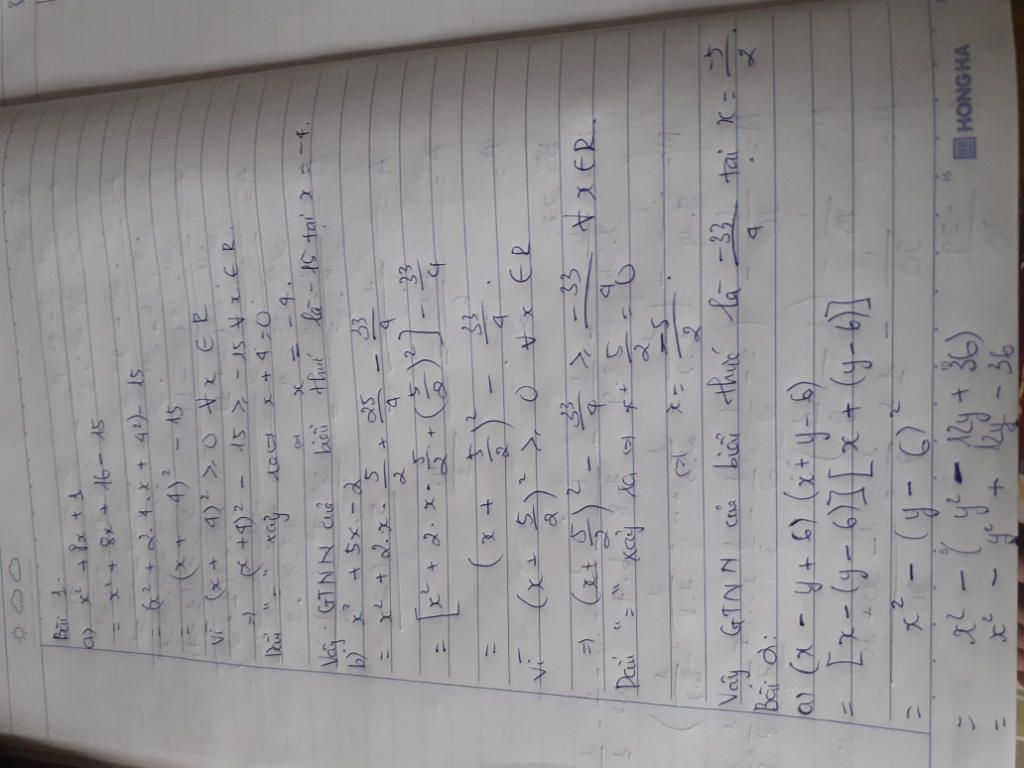 Bài 1:
a) x² + 8x + 1
= x² + 8x + 16 - 15
= (x² + 2.4.x + 4²) - 15
= (x + 4)² - 15
Vì (x + 4)² ≥ 0 ∀ x ∈ R
⇒ (x + 4)² - 15 ≥ -15 ∀ x ∈ R.
Dấu "=" xảy ra ⇔ x + 4 = 0
⇔ x = -4.
Vậy GTNN của biểu thức là -15 tại x = -4.
b) x² + 5x - 2
= x² + 2x · 5/2 + 25/4 - 33/4
= [x² + 2 · x · 5/2 + (5/2)²] - 33/4
= (x + 5/2)² - 33/4.
Vì (x + 5/2)² ≥ 0 ∀ x ∈ R
⇒ (x + 5/2)² - 33/4 ≥ -33/4 ∀ x ∈ R.
Dấu "=" xảy ra ⇔ x + 5/2 = 0
⇔ x = -5/2.
Vậy GTNN của biểu thức là -33/4 tại x = -5/2.
Bài 2:
a) (x - y + 6) (x + y - 6)
= [x - (y - 6)] [x + (y - 6)]
= x² - (y - 6)²
= x² - (y² - 12y + 36)
= x² - y² + 12y - 36
HONG HA